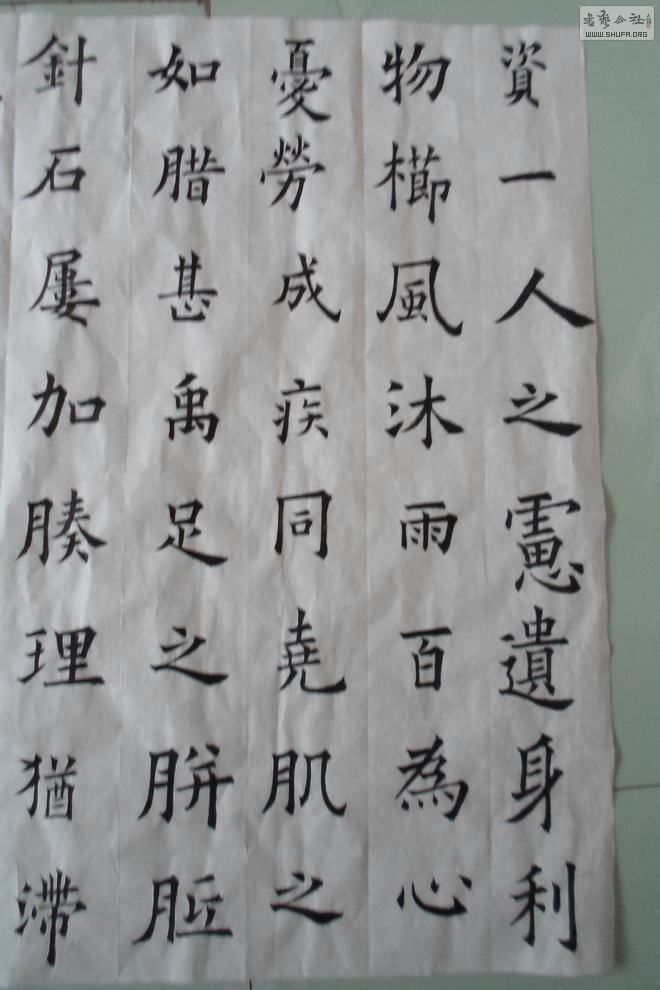 資一人之慮遺身利
物櫛風沐雨百為心
憂勞成疾同堯肌之
如腊甚禹足之胼胝
針石屢加腠理猶滯
書藝公社
WWW.SHUFA.ORG